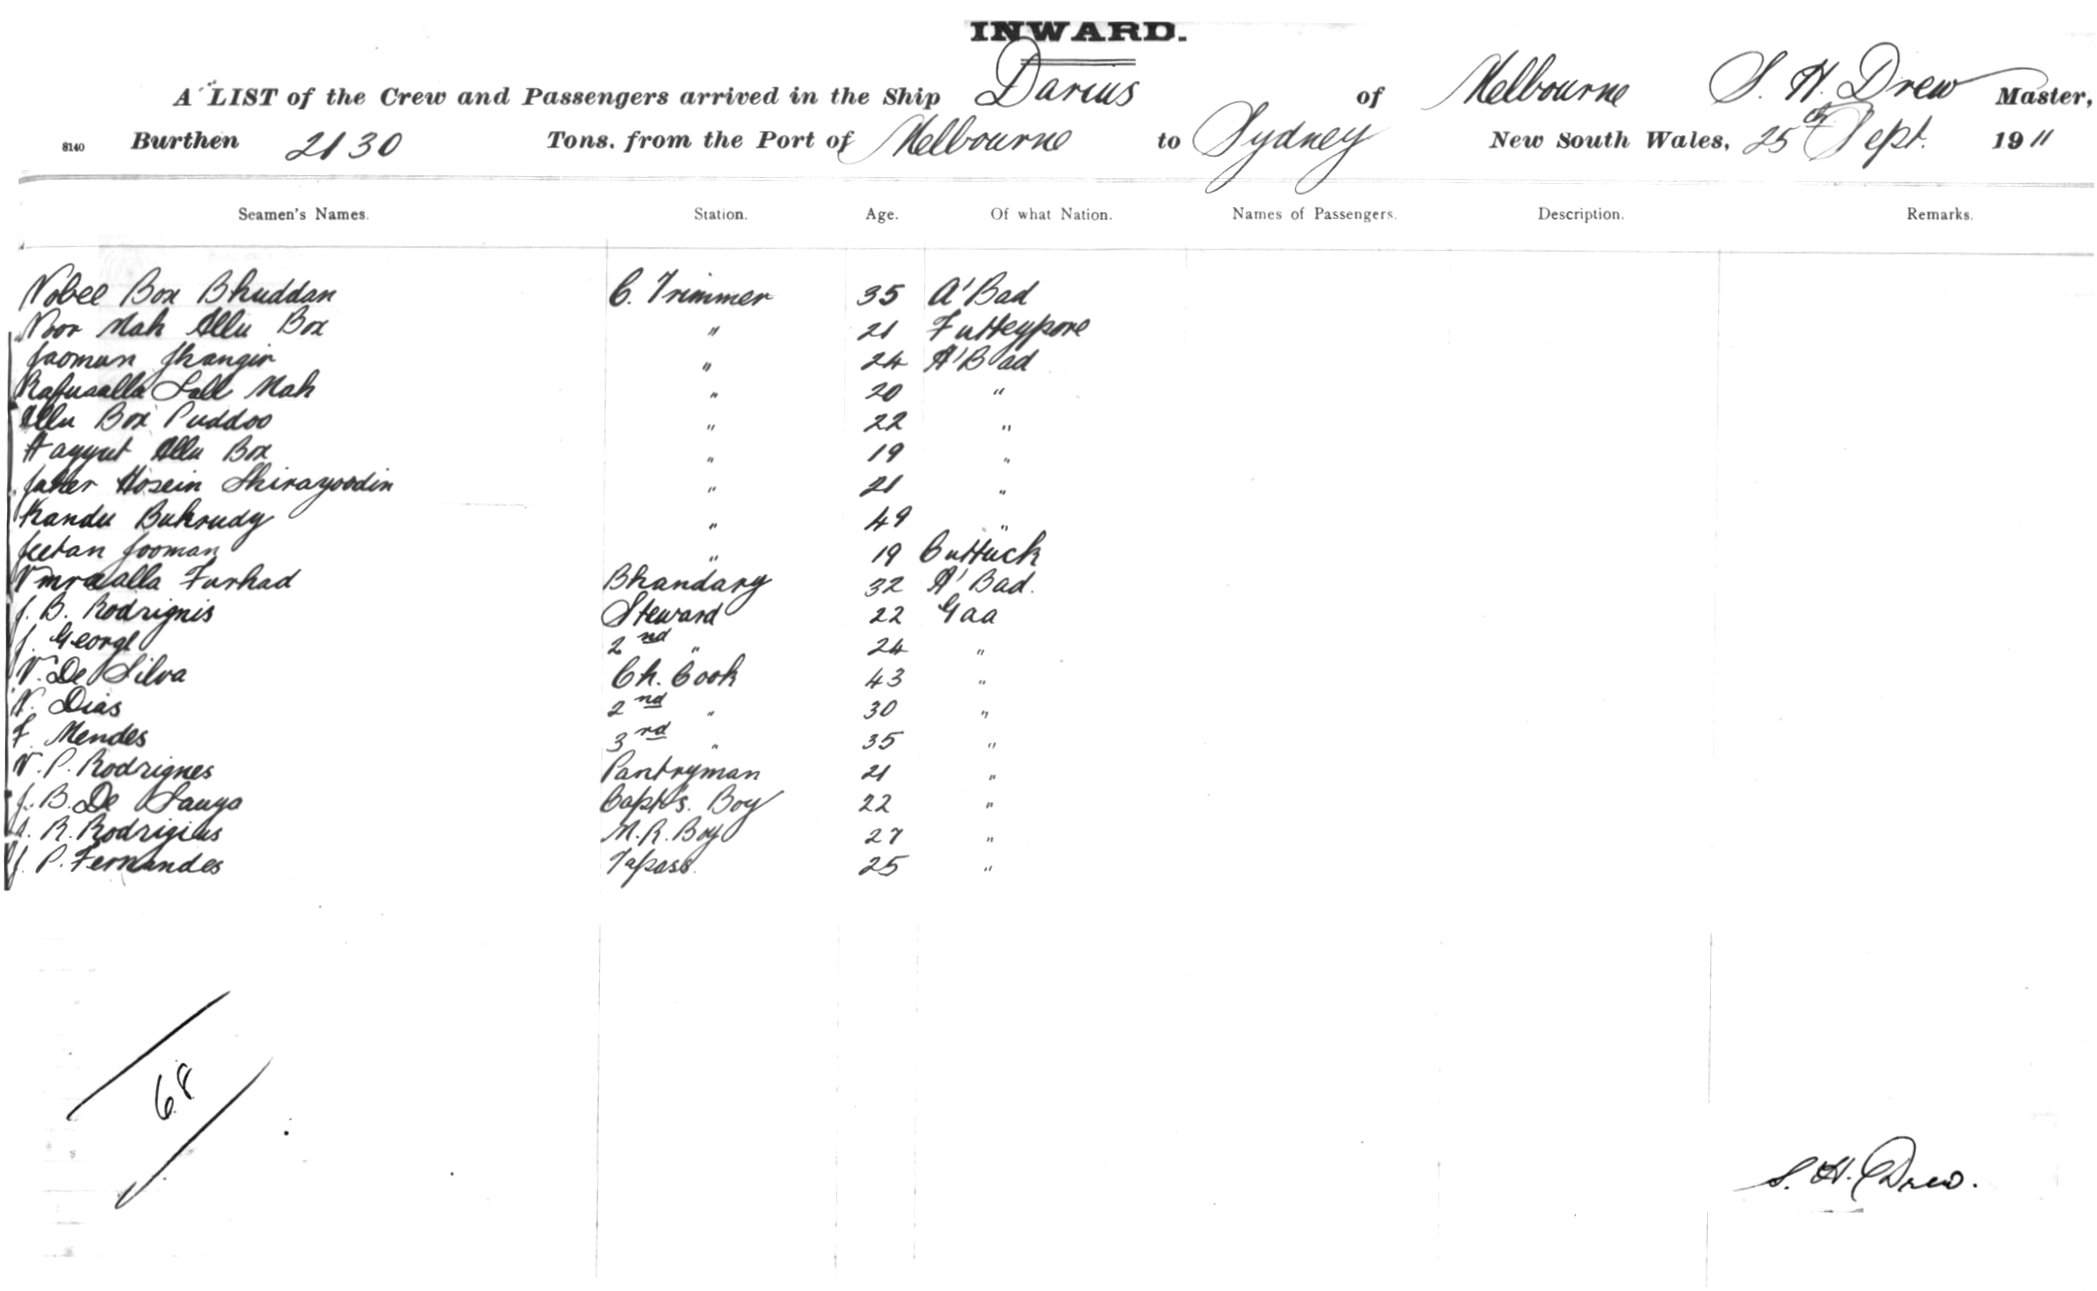 INWARD.
A LIST of the Crew and Passengers arrived in the Ship Darius of Melbourne S. H. Drew Master,
8140 Burthen 2130 Tons. from the Port of Melbourne to Sydney New South Wales, 25th Sept. 1911
Seamen's Names. Station. Age. Of what Nation. Names of Passengers. Description. Remarks.
Nobee Box Bhuddan C. Trimmer 35 A'Bad
Noor Mah Ellu Box " 21 Futteypore
Jaomun Jhangir " 24 A'Bad
Rafusalla Lall Mah " 20 "
Ellu Box Puddoo " 22 "
Hayyut Ellu Box " 19 "
Jaher Hosein Shirayoodin " 21 "
Kandu Buhrudy " 49 "
Jeetan Jooman " 19 Cuttuck
Furhad Bhandary 32 A'Bad.
J. B. Rodrignis Steward 22 Gaa
J. George 2nd " 24 "
N. De Silva Ch. Cook 43 "
N. Dias 2nd " 30 "
F. Mendes 3rd " 35 "
N. P. Rodrignes Pantryman 21 "
J. B. De Sauya Capt's. Boy 22 "
R. Rodrigius M. R. Boy 27 "
J. P. Fernandes Tapass. 25 "
68
S. H. Drew.